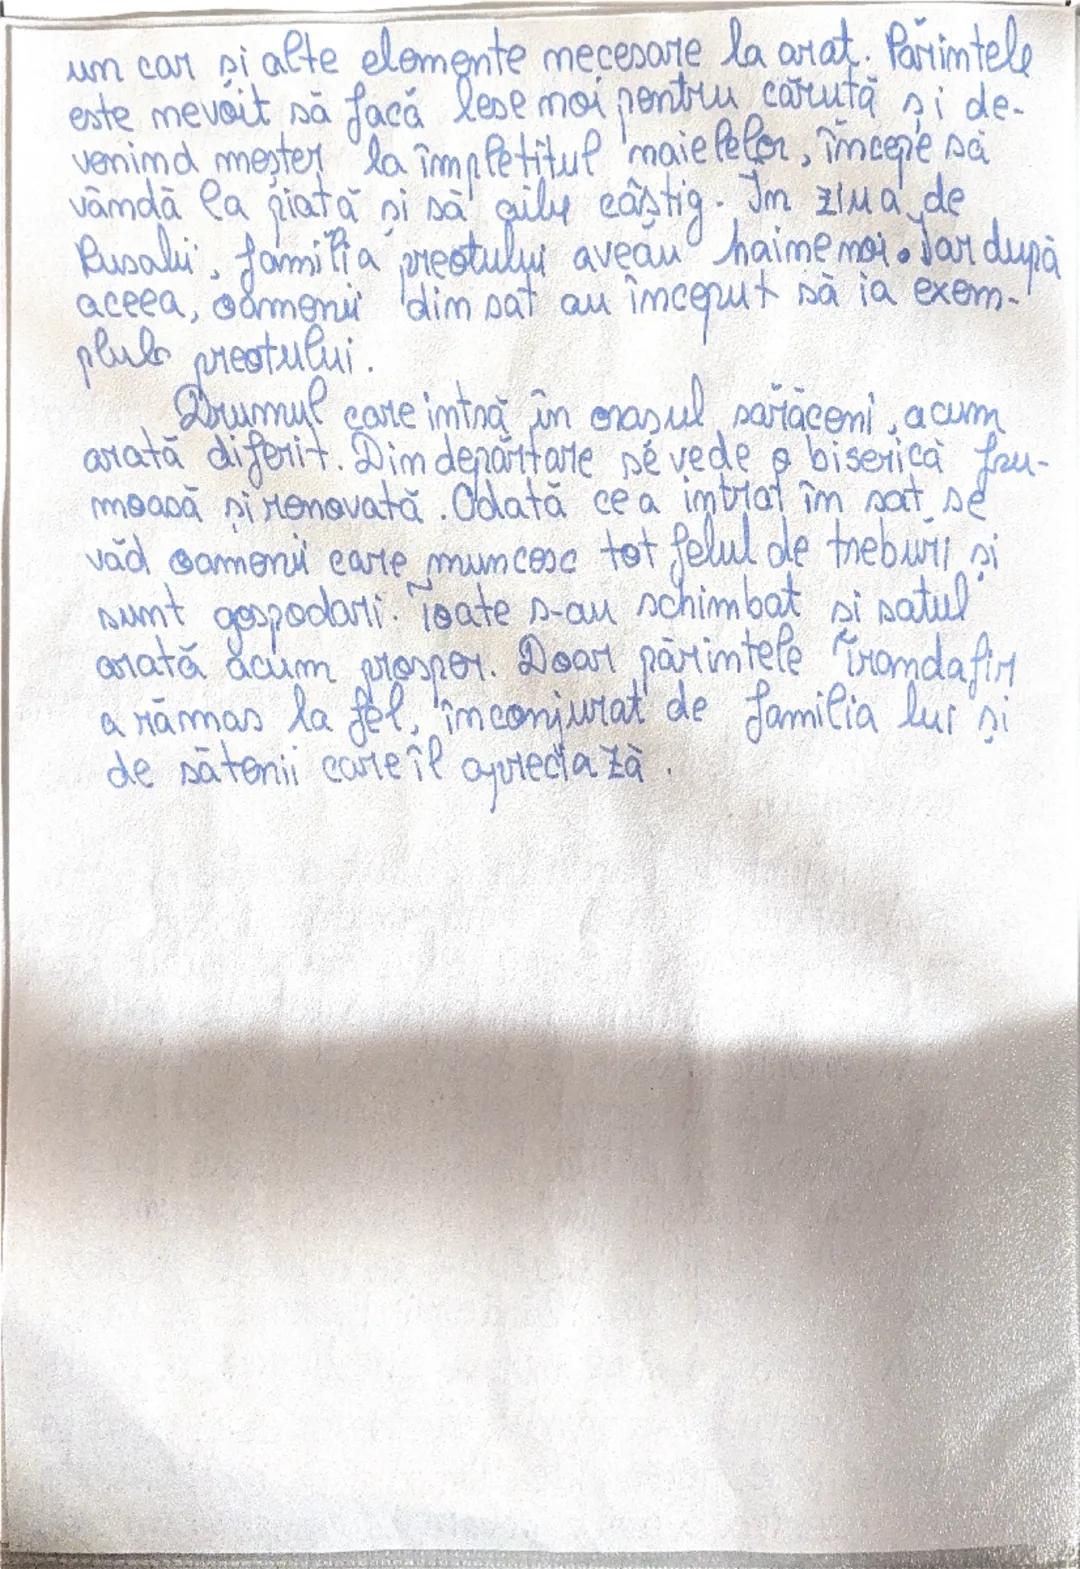 un car și alte elemente necesare la arat. Părintele
este nevoit să facă lese noi pentru căruță și de-
venind meșter la împletitul nuielelor, începe să
vândă la piață și să aibe câștig. În ziua de
Rusalii, familia preotului aveau haine noi. Iar după
aceea, oamenii din sat au început să ia exem-
plulo preotului.
Drumul care intră în orașul sărăceni, acum
arată diferit. Din depărtare se vede o biserică fru-
moasă și renovată. Odată ce a intrat în sat se
văd oamenii care muncesc tot felul de treburi și
sunt gospodari. Toate s-au schimbat și satul
arată acum prosper. Doar părintele Trandafir
a rămas la fel, înconjurat de familia lui și
de sătenii care îl apreciază.